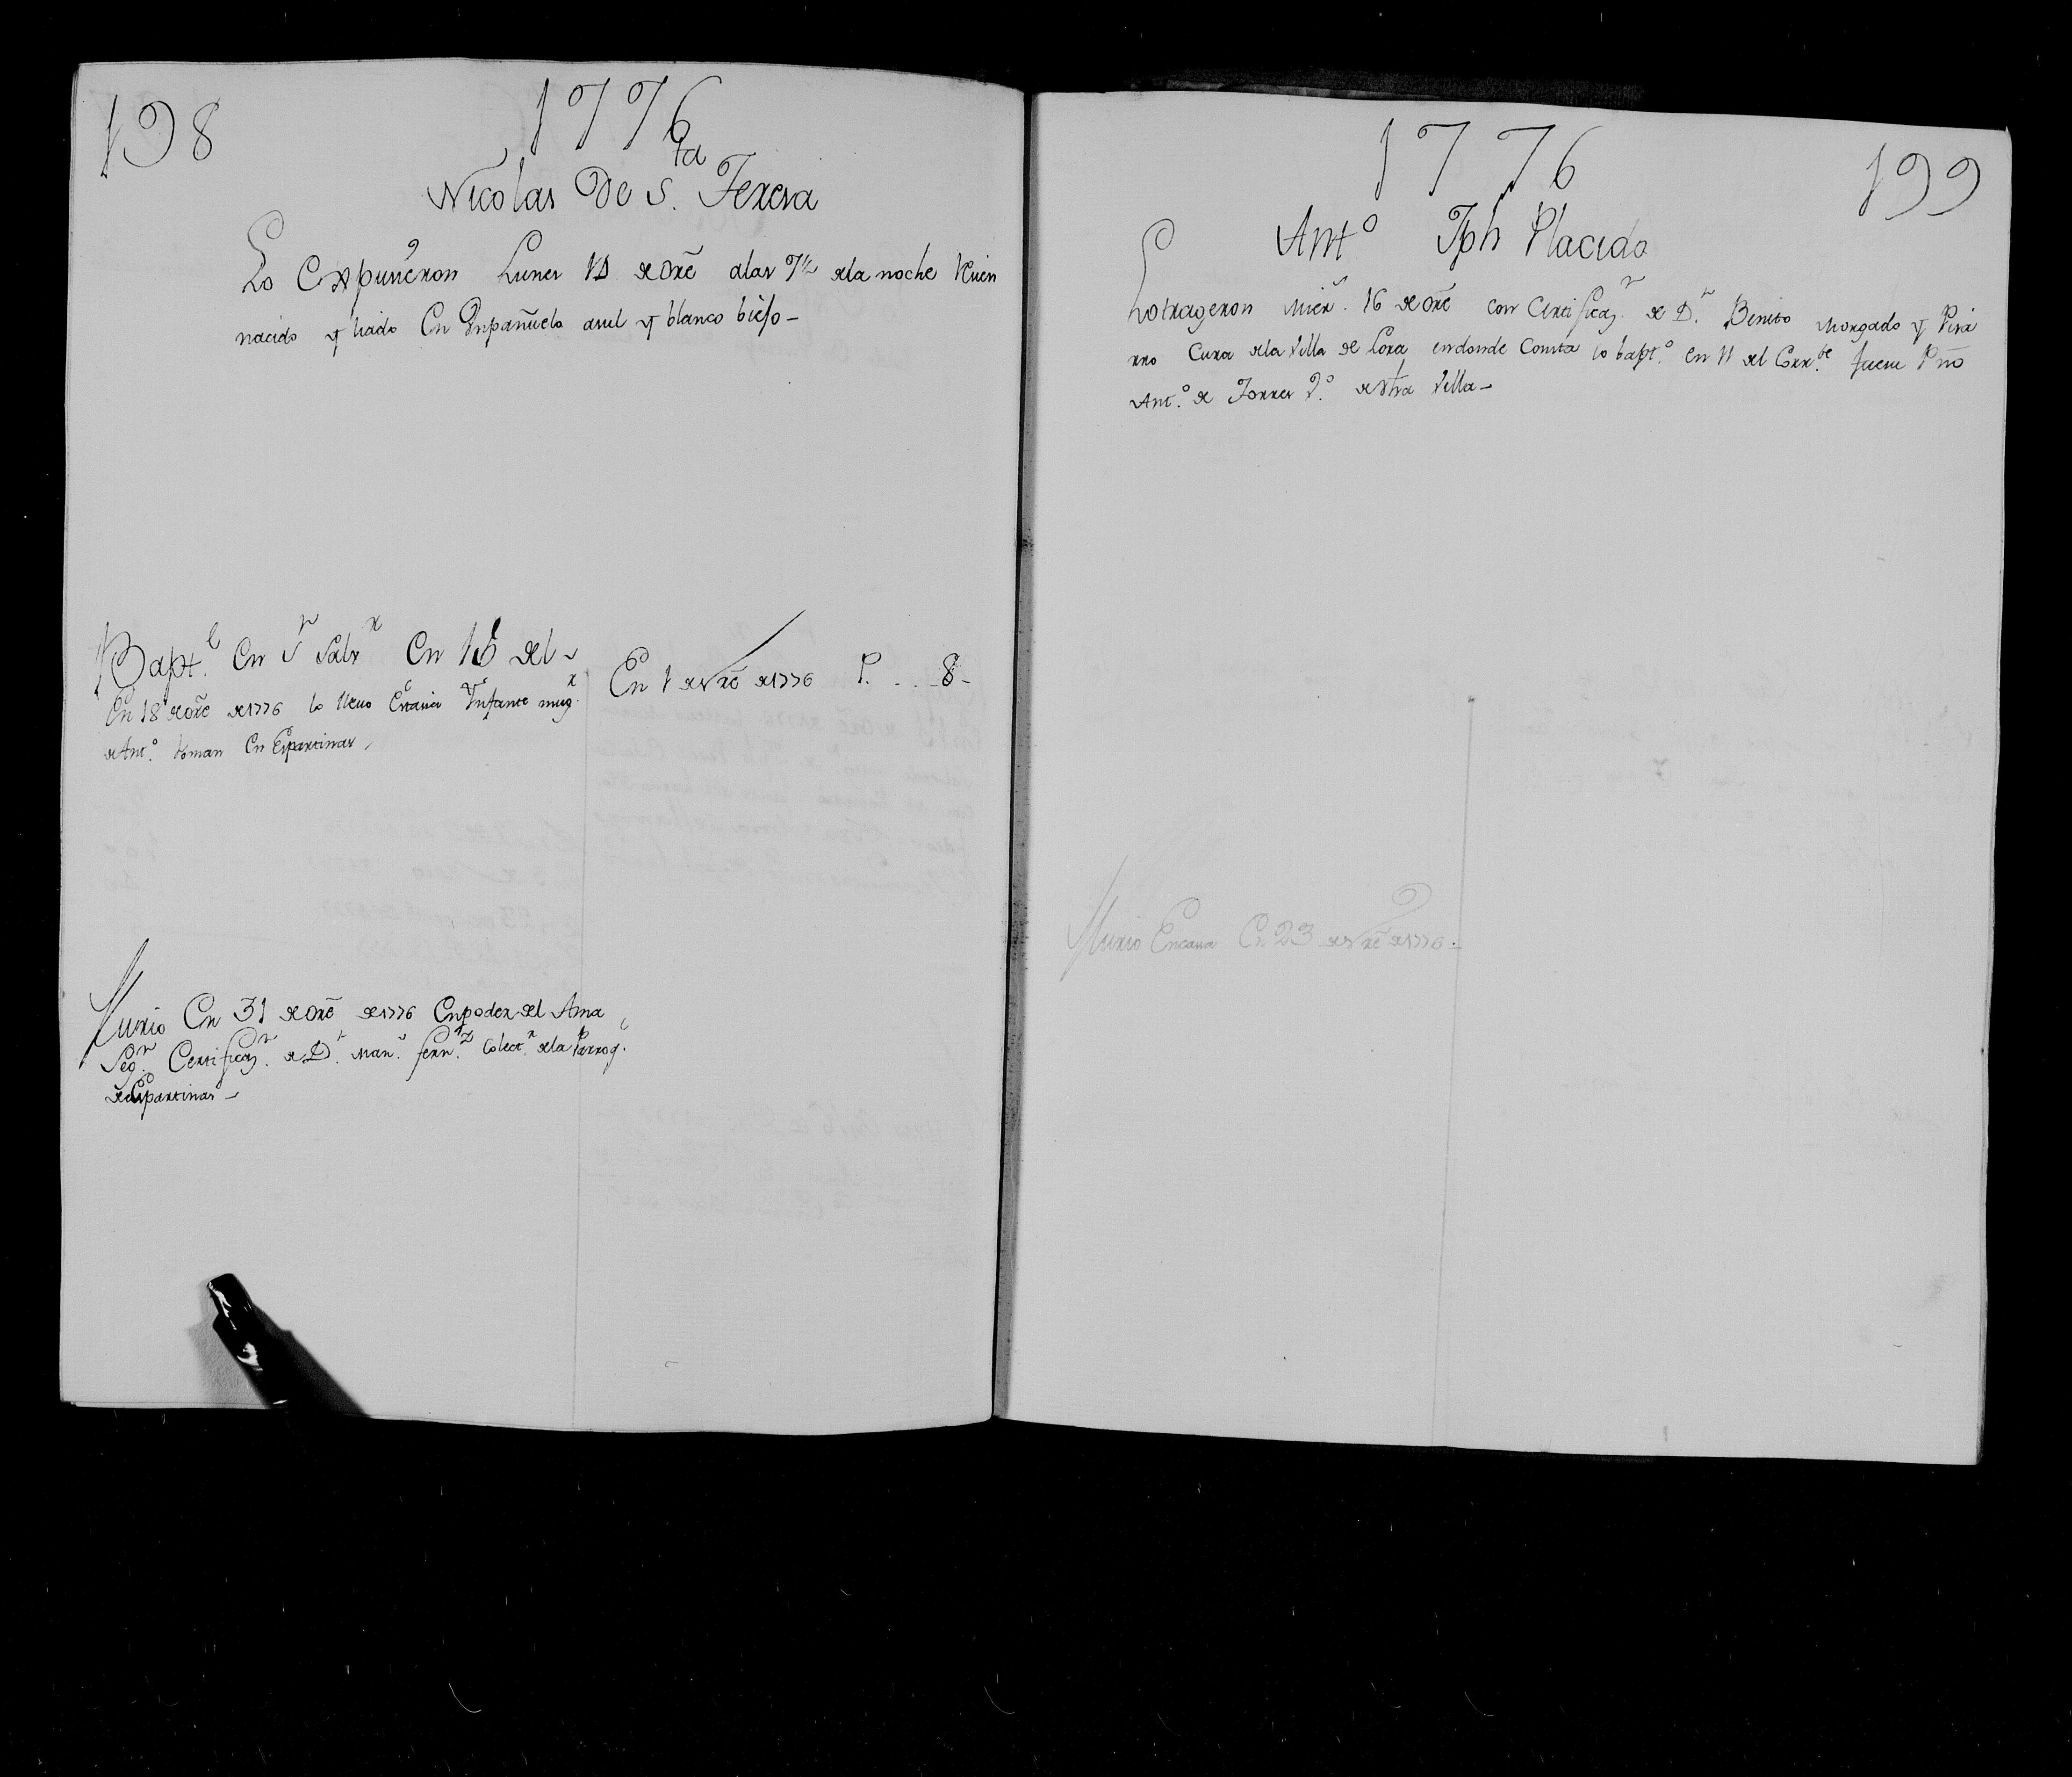 198
1776
Nicolas De S.ta Teresa
Lo Expusieron Lunes de Ore alas 7½ dela noche Recien
nacido y liado En Un pañuelo asul y blanco biejo –
Bapt.e En Sn Salvr En 15 del
En 18 de Ore de 1776 lo llevo Estacia Infante mugr
de Ant.o Roman En Espartinas
En 1 de Nre de 1776 P. . . . 8 –
Murio En 31 de Ore de 1776 En poder del Ama
Segn Certificazn de Dn Man.l Fernz Colectr dela Parroq.
de Espartinas –
1776
199
Ant.o Jph Placido
Lo trageron Mier.s 16 de Ore con Certificazn de Dn Benito Morgado y Piza
rro Cura dela Villa de Lora en donde Consta lo bapt.o en 11 del Corr.te fue su Pno
Ant.o de Torres V.o de dha Villa –
Murio En casa En 23 de Nre de 1776 –